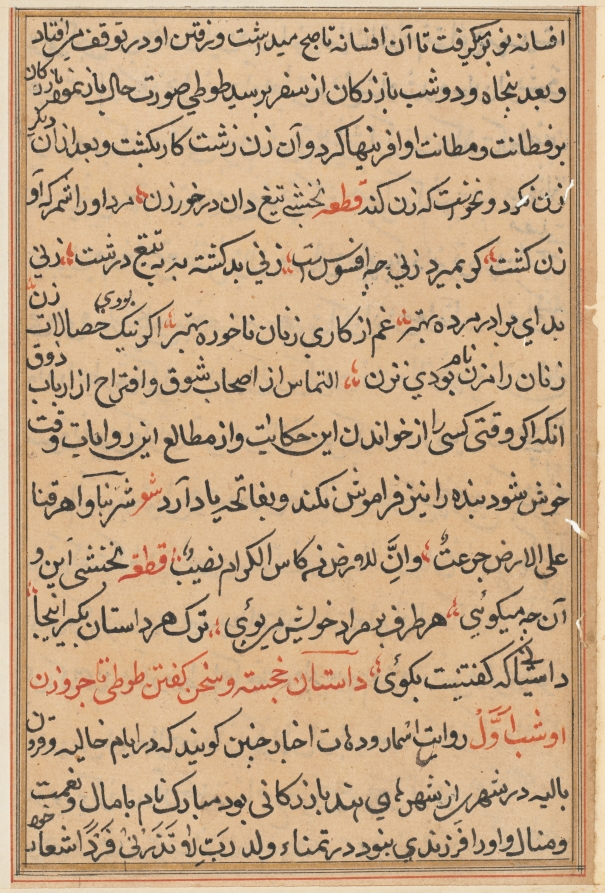 افسانه نو برمیگرفت تا آن افسانه تا صبح میداشت و رفتن او در توقف می افتاد
و بعد پنجاه و دو شب بازرکان از سفر برسید طوطی صورت حال باز نمود بازرکان
بر فطانت و متانت او افرینها کرد و آن زن زشت کار بکشت و بعد ازان دیکر
زن نکرد و نخواست که زن کند قطعه نخشبی تیغ دان در خور زن مرد او را شمر که او
زن کشت کو بمیرد زنی چه افسوس است زنی بد کشته به به تیغ درشت زنی
بد ای برادر مرده بهتر غم از کاری زنان ناخورده بهتر اکر نیک بودی خصالات زن
زنان را مزن نام بودی نزن التماس از اصحاب شوق و اقتراح از ارباب ذوق
انکه اکر وقتی کسی را از خواندن این حکایت و از مطالع این روایات وقت
خوش شود بنده را نیز فراموش نکند و بفاتحه یاد آرد شعر شربنا و اهرقنا
علی الارض جرعة وان للارض من کاس الکرام نصیب قطعه نخشبی این و
آن چه میکوئی هر طرف بر مراد خویش مپوئی ترک هر داستان بکیر اینجا
داستانی که کفتنیست بکوئی داستان خجسته و سخن کفتن طوطی تاجر و زن
او شب اول روایت اسمار و دهات اخبار چنین کویند که در ایام خالیه و قرون
بالیه در شهر از شهر های هند بازرکانی بود مبارک نام با مال و نعمت
و منال و او را فرزندی نبود در تمناء ولد رب لا تذرنی فردا شعار خود